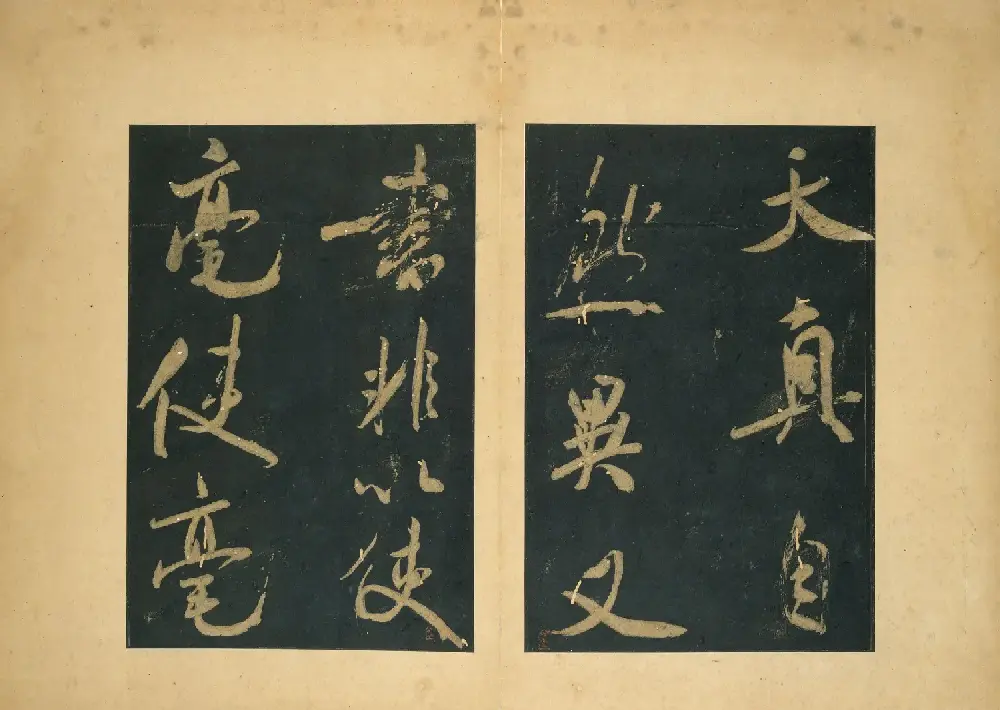 天真自
然異又
書非以使
毫使毫